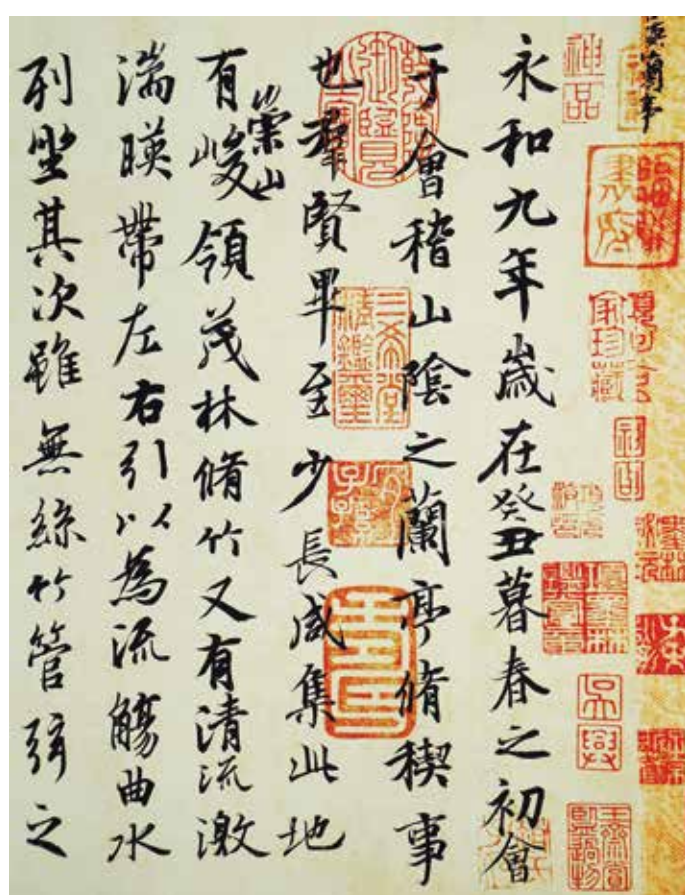 永和九年歲在癸丑暮春之初會
于會稽山陰之蘭亭脩稧事
也羣賢畢至少長咸集此地
有崇山峻領茂林脩竹又有清流激
湍暎帶左右引以為流觴曲水
列坐其次雖無絲竹管弦之
神品
乾隆御覽之寶
三希堂精鑑璽
宜子孫